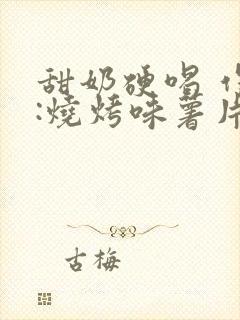 甜奶硬唱
:燒烤味薯片
古梅